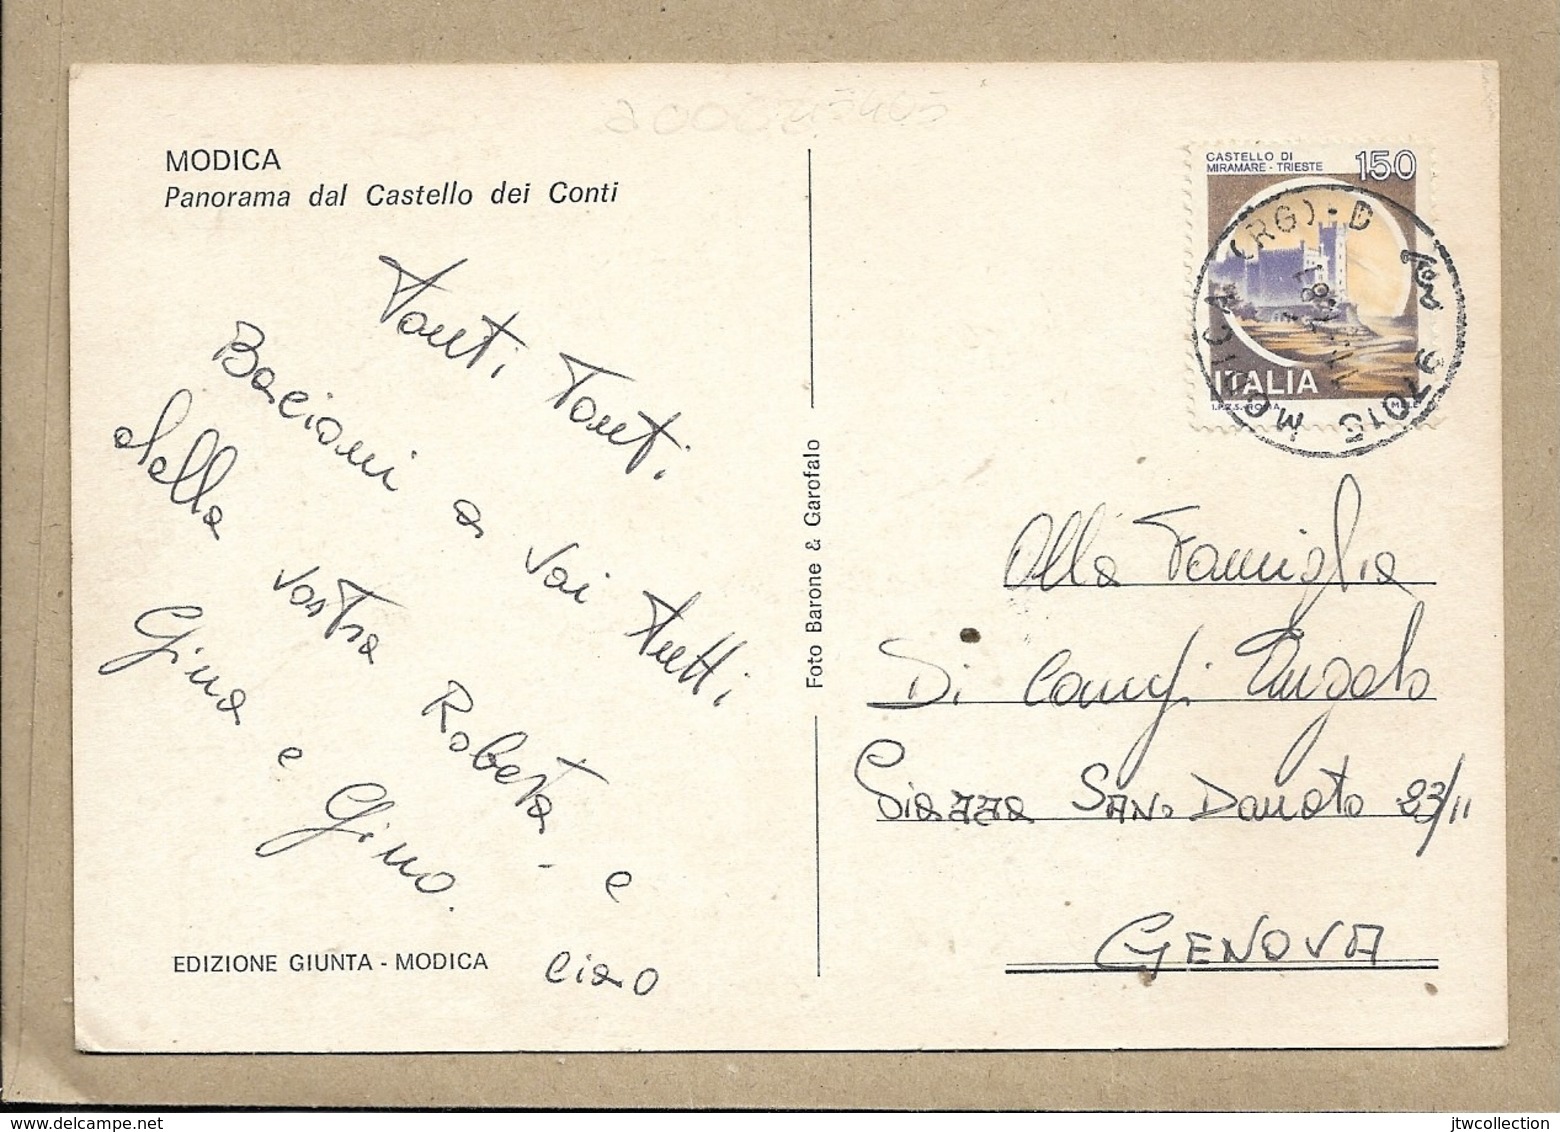 2000
MODICA
Panorama dal Castello dei Conti
Tanti Tanti
Bacioni a voi tutti
dalla vostra Roberta - e
Gina e Gino.
ciao
EDIZIONE GIUNTA - MODICA
Foto Barone & Garofalo
CASTELLO DI
MIRAMARE - TRIESTE
150
ITALIA
I.P.Z.S. - ROMA
97015 MODICA (RG) - D
81
Alla Famiglia
Di Angelo
Piazza SAN. Donato 23/11
GENOVA
jtwcollection